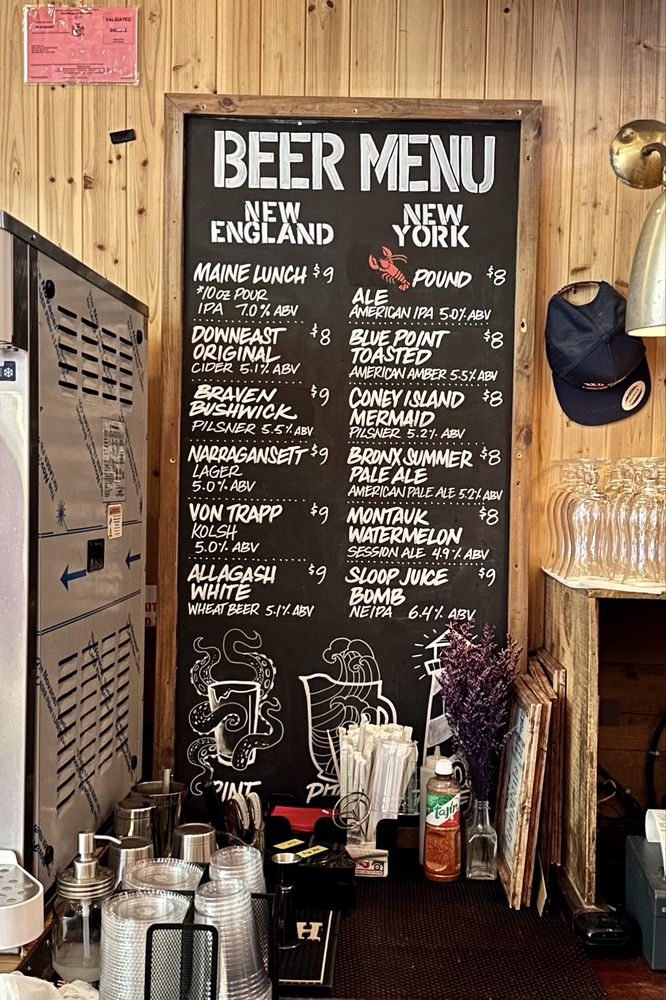 VALIDATED
BEER MENU
NEW ENGLAND
MAINE LUNCH $9
*10oz POUR
IPA 7.0% ABV
DOWNEAST $8
ORIGINAL
CIDER 5.1% ABV
BRAVEN $9
BUSHWICK
PILSNER 5.5% ABV
NARRAGANSETT $9
LAGER
5.0% ABV
VON TRAPP $9
KOLSH
5.0% ABV
ALLAGASH $9
WHITE
WHEAT BEER 5.1% ABV
NEW YORK
POUND $8
ALE
AMERICAN IPA 5.0% ABV
BLUE POINT $8
TOASTED
AMERICAN AMBER 5.5% ABV
CONEY ISLAND $8
MERMAID
PILSNER 5.2% ABV
BRONX SUMMER $8
PALE ALE
AMERICAN PALE ALE 5.2% ABV
MONTAUK $8
WATERMELON
SESSION ALE 4.9% ABV
SLOOP JUICE $9
BOMB
NEIPA 6.4% ABV
PINT
Tajín
H